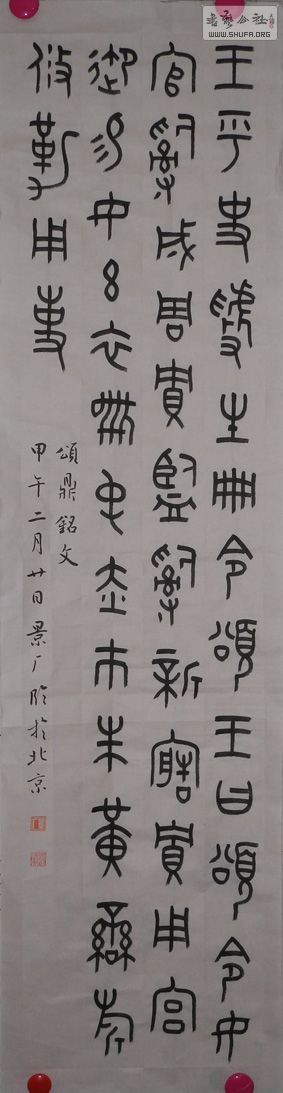 王乎史虢生冊令頌王曰頌令女
官𤔲成周貯監𤔲新造貯用宮
御易女玄衣黹屯赤巿朱黃䜌旂
攸勒用事
頌鼎銘文
甲午二月廿日景厂臨於北京
書藝公社
WWW.SHUFA.ORG